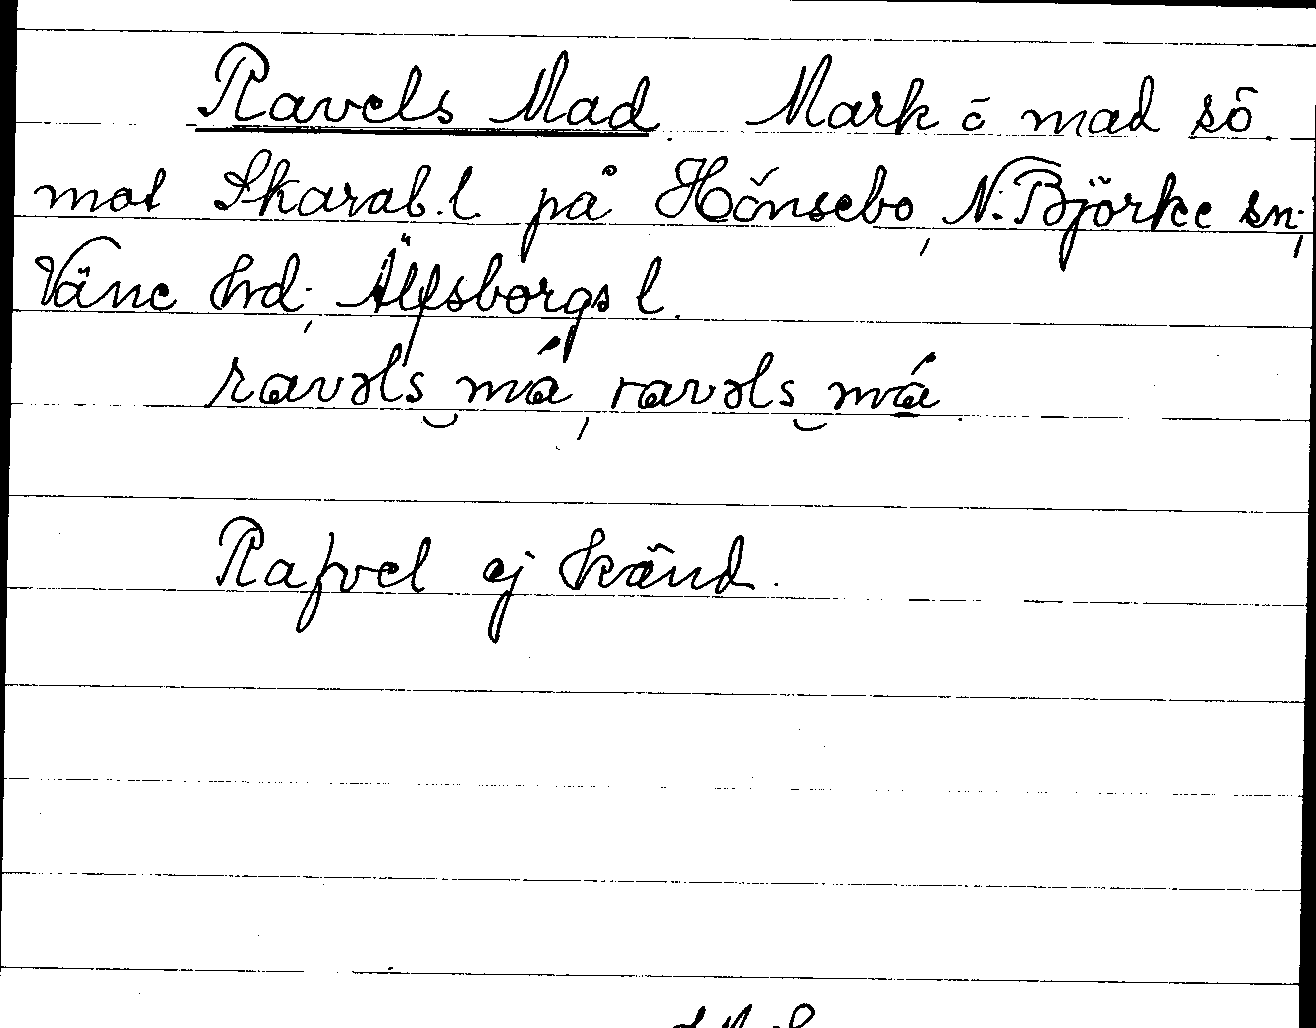 Ravels Mad. Mark o mad sö.
mot Skarab.l. på Hönsebo, N. Björke sn;
Väne hrd; Älfsborgs l.
ravəls‿må, ravəls‿må.
Rafvel ej känd.